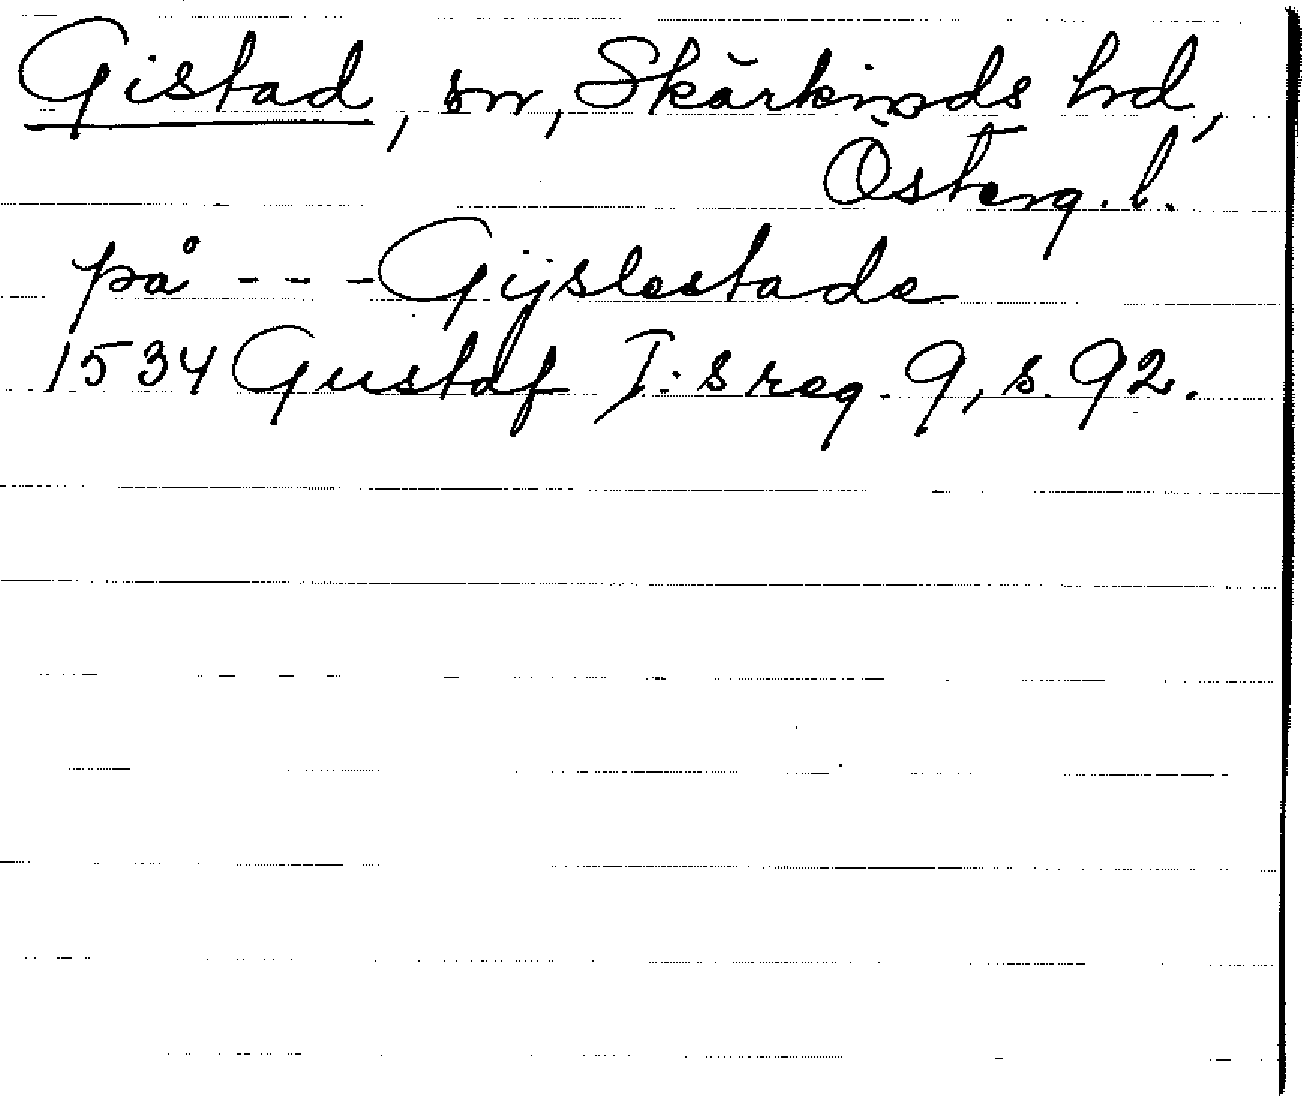 Gistad, sn, Skärkinds hd,
Österg. l.
på - - - Gijslestade
1534 Gustaf I:s reg. 9, s. 92.